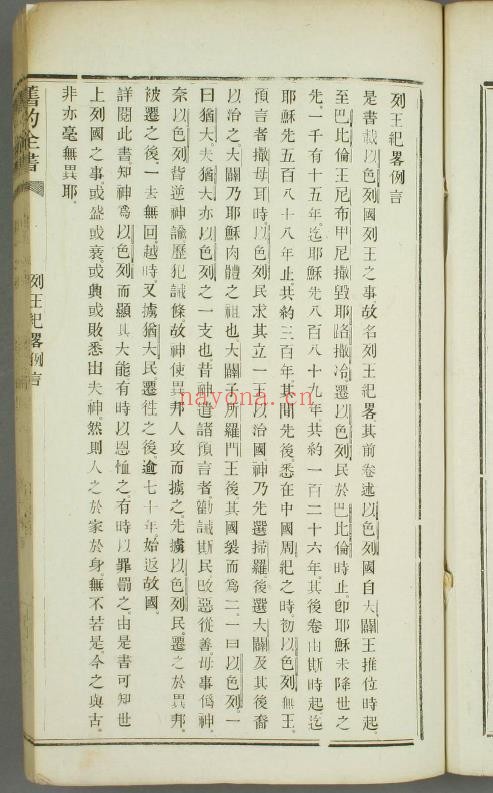 列王紀畧例言
是書載以色列國列王之事故名列王紀畧其前卷述以色列國自大闢王推位時起
至巴比倫王尼布甲尼撒毀耶路撒冷遷以色列民於巴比倫時止卽耶穌未降世之
先一千有十五年迄耶穌先八百八十九年共約一百二十六年其後卷由斯時起迄
耶穌先五百八十八年止共約三百年其間先後悉在中國周紀之時初以色列無王
預言者撒母耳時以色列民求其立一王以治國神乃先選掃羅後選大闢及其後裔
以治之大闢乃耶穌肉體之祖也大闢子所羅門王後其國裂而爲二一曰以色列一
曰猶大夫猶大亦以色列之一支也昔神遣諸預言者勸誡斯民改惡從善毋事僞神
奈以色列背逆神諭歷犯誡條故神使異邦人攻而擄之先擄以色列民遷之於異邦
被遷之後一去無回越時又擄猶大民遷徃之後逾七十年始返故國
詳閱此書知神爲以色列而顯其大能有時以恩恤之有時以罪罰之由是書可知世
上列國之事或盛或衰或興或敗悉出夫神然則人之於家於身無不若是今之與古
非亦毫無異耶
舊約全書
列王紀畧例言
nayona.cn